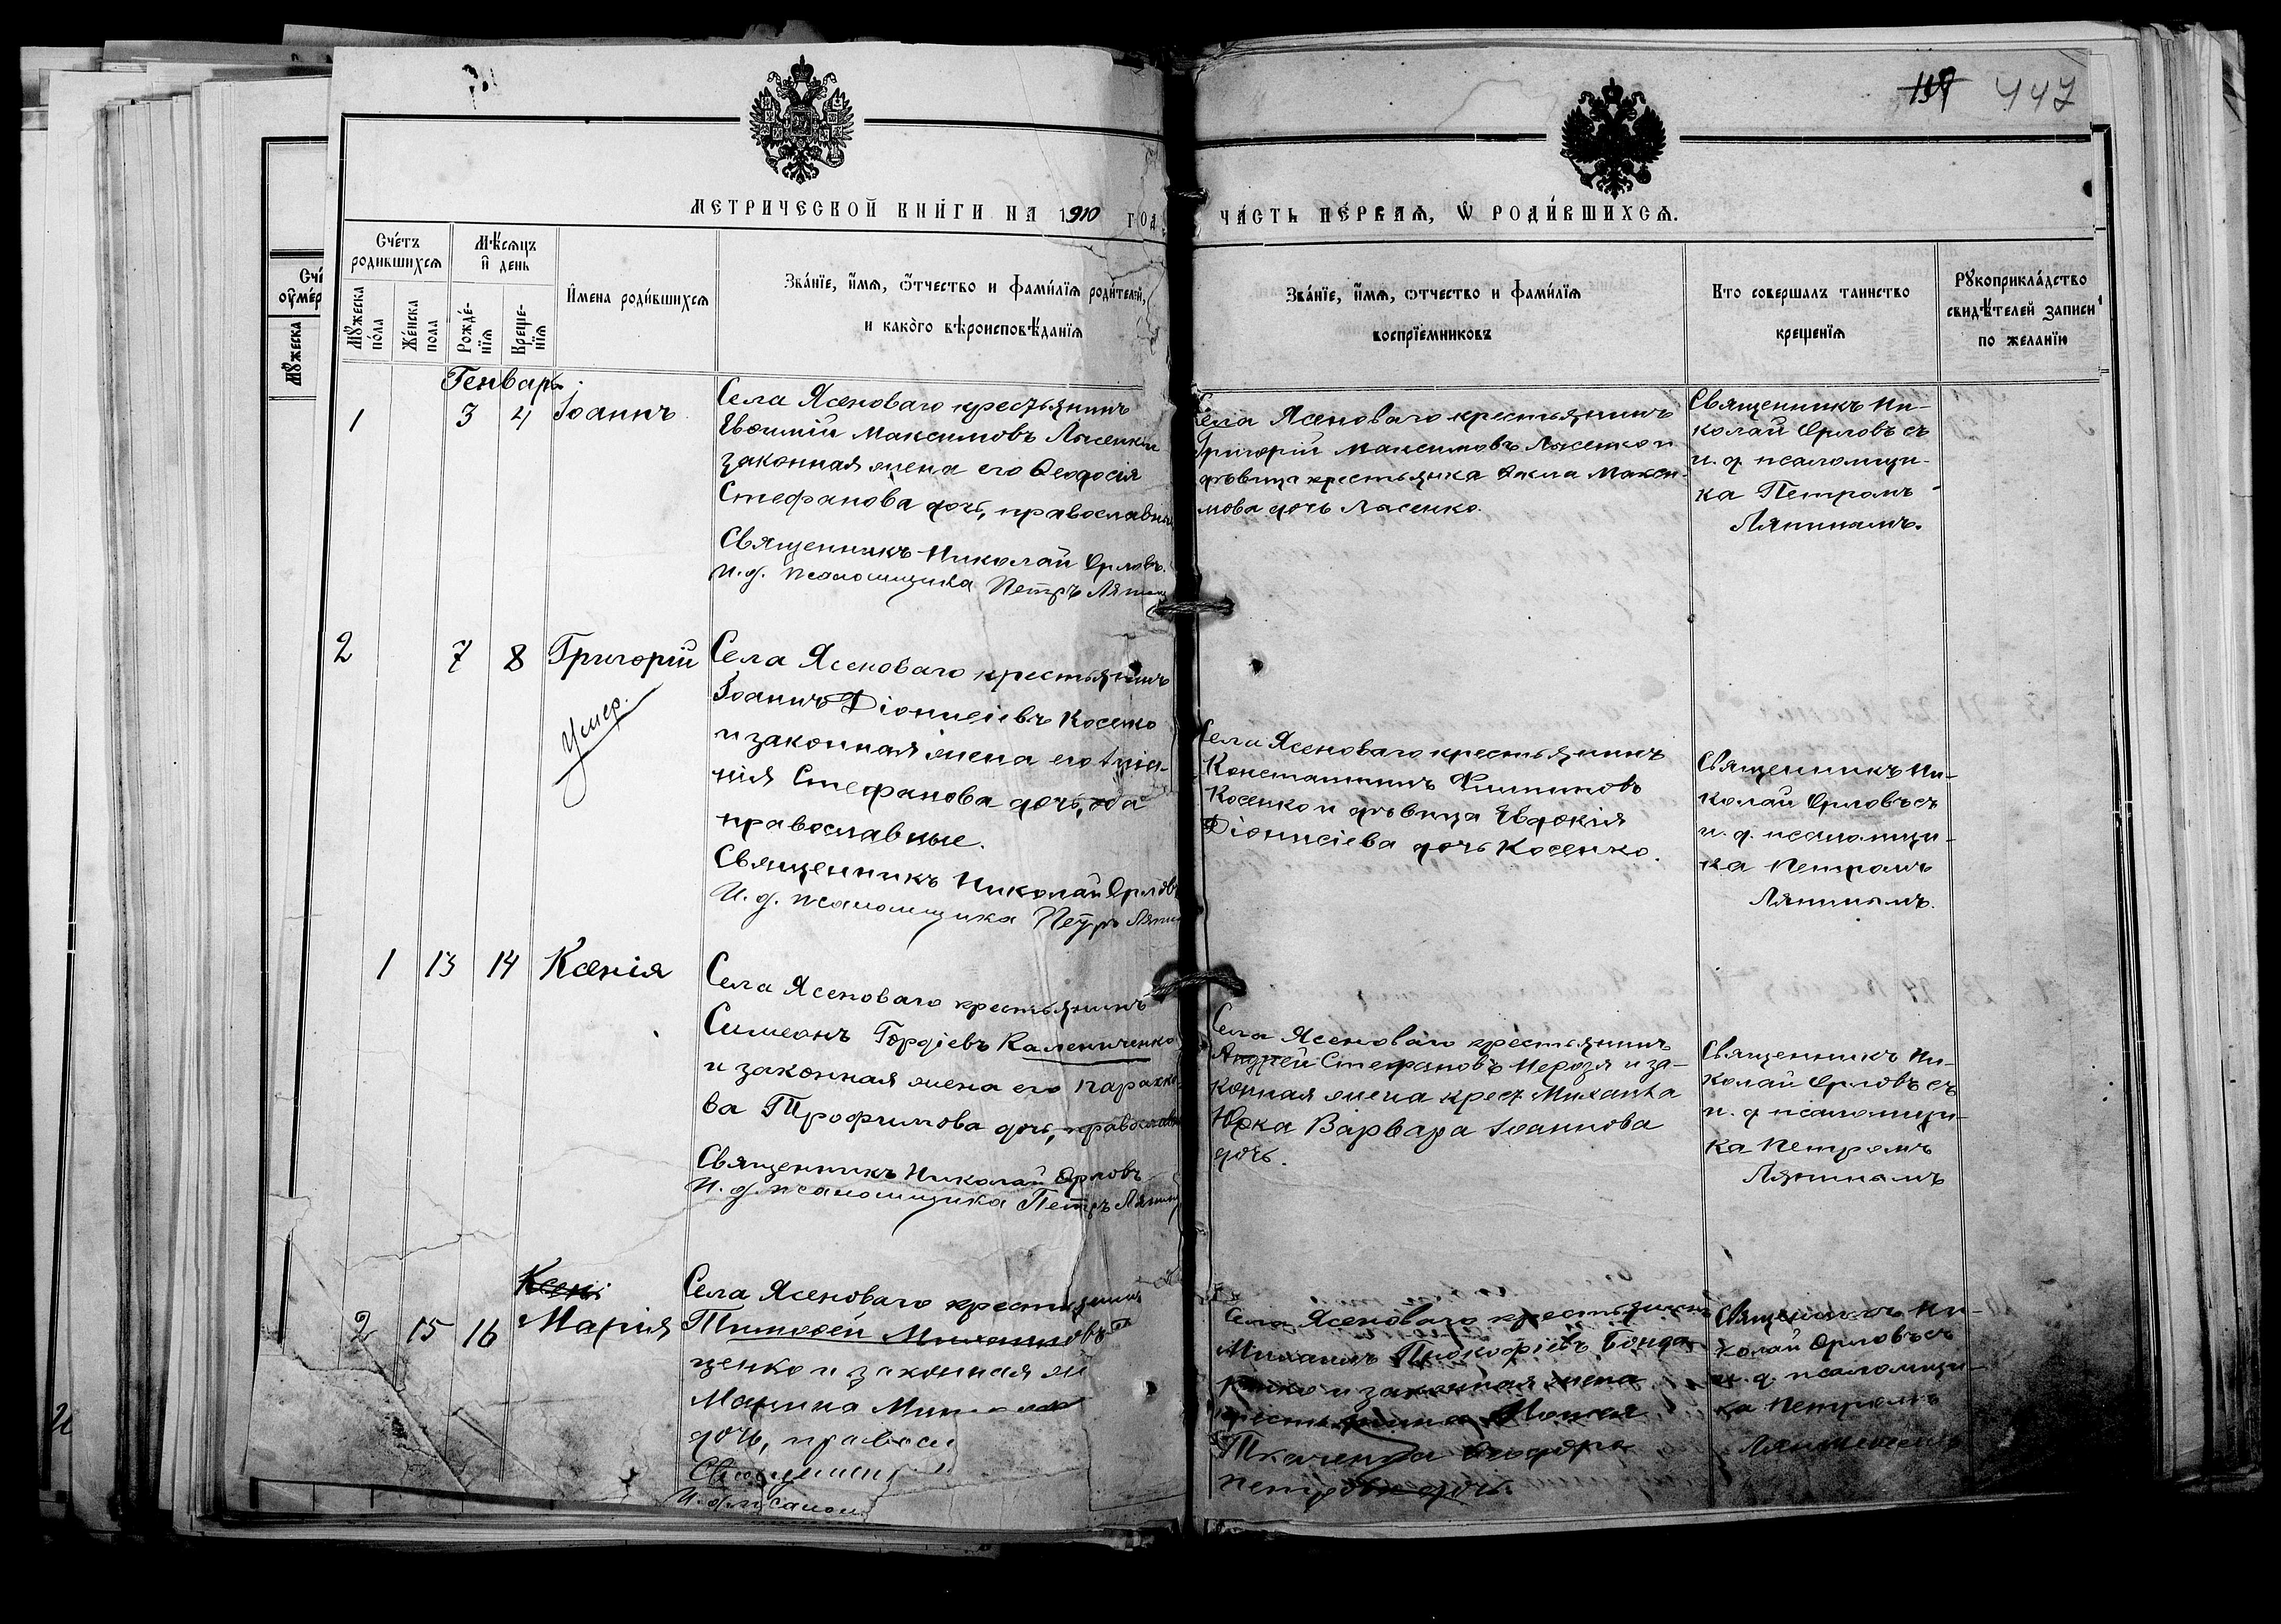 139 447
МЕТРИЧЕСКОЙ КНИГИ НА 1910 ГОДЪ
ЧАСТЬ ПЕРВАЯ, Ѡ РОДИВШИХСЯ.
Счетъ родившихся
Мѣсяцъ и день
Имена родившихся
Званіе, имя, отчество и фамилія родителей,
и какого вѣроисповѣданія
Мужеска пола
Женска пола
Рожденія
Крещенія
Званіе, имя, отчество и фамилія
воспріемниковъ
Кто совершалъ таинство
крещенія
Рукоприкладство
свидѣтелей записи
по желанію
Мужеска
Генварь
1 3 4 Іоаннъ
Села Ясеноваго крестьянинъ
Евѳимій Максимовъ Лысенко и
законная жена его Ѳеодосія
Стефанова дочь, православные
Священникъ Николай Орловъ.
И. д. псаломщика Петръ
Села Ясеноваго крестьянинъ
Григорій Максимовъ Лысенко и
дѣвица крестьянка Ѳекла Макси-
мова дочь Лысенко.
Священникъ Ни-
колай Орловъ съ
и. д. псаломщи-
ка Петромъ
Ляпинамъ.
2 7 8 Григорій
умер.
Села Ясеноваго крестьянинъ
Іоаннъ Діонисіевъ Косенко
и законная жена его
Стефанова дочь, оба
православные.
Священникъ Николай Орловъ
И. д. псаломщика Петръ
Села Ясеноваго крестьянинъ
Константинъ Филиповъ
Косенко и дѣвица Евдокія
Діонисіева дочь Косенко.
Священникъ Ни-
колай Орловъ съ
и. д. псаломщи-
ка Петромъ
Ляпинымъ.
1 13 14 Ксенія
Села Ясеноваго крестьянинъ
Симеонъ Гордіевъ Калениченко
и законная жена его Параске-
ва Трофимова дочь, православ
Священникъ Николай Орловъ
И. д. псаломщика Петръ
Села Ясеноваго крестьянинъ
Андрей Стефановъ и за-
конная жена крест. Михаила
Юрка Варвара Іоаннова
дочь.
Священникъ Ни-
колай Орловъ съ
и. д. псаломщи-
ка Петромъ
Ляпинамъ
Ксені
2 15 16 Марія
Села Ясеноваго крестьянинъ
Тимоѳей
щенко и законная же
Марина
дочь, правосл
Священни
И. д. псалом
Села Ясеноваго крестьянинъ
Михаилъ Прокофіевъ Бонда
ренко и законная жена
крестьянина
Ткаченка Ѳеодора
Петрова дочь.
Священникъ Ни-
колай Орловъ съ
и. д. псаломщи-
ка Петромъ